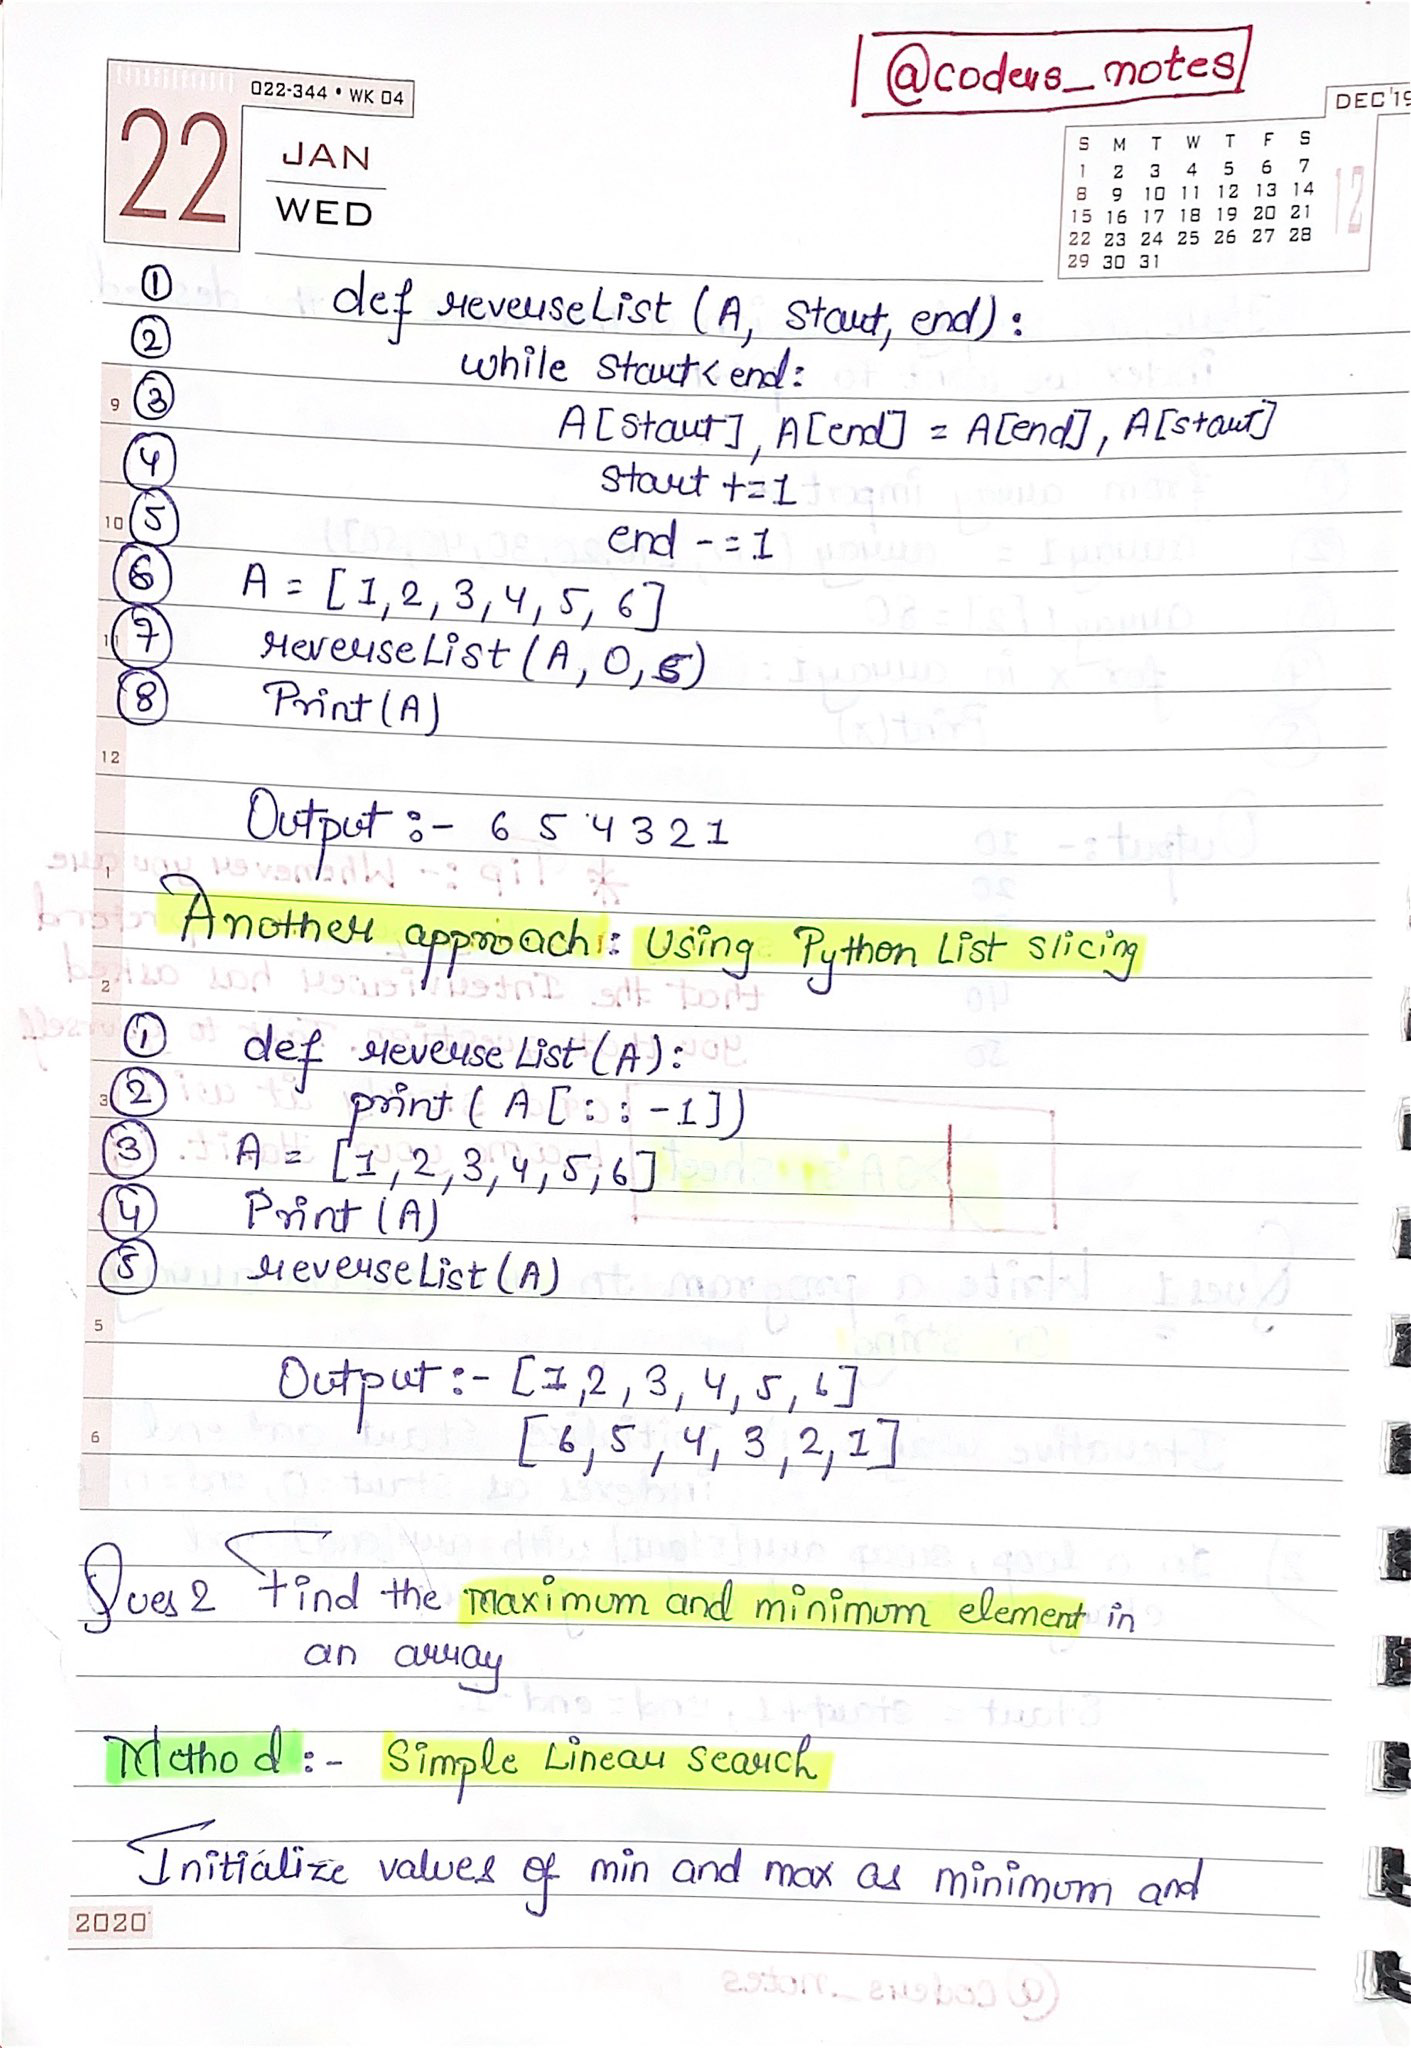 @coders_notes
022-344 • WK 04
22
JAN
WED
DEC'19
S M T W T F S
1 2 3 4 5 6 7
8 9 10 11 12 13 14
15 16 17 18 19 20 21
22 23 24 25 26 27 28
29 30 31
12
① def reverseList (A, start, end):
② while start<end:
9 ③ A[start], A[end] = A[end], A[start]
④ start +=1
10 ⑤ end -=1
⑥ A = [1,2,3,4,5,6]
11 ⑦ reverseList (A,0,5)
⑧ Print(A)
12
Output :- 6 5 4 3 2 1
1
Another approach: Using Python List slicing
2
① def reverse List (A):
3 ② print ( A [: : -1])
③ A = [1,2,3,4,5,6]
④ Print (A)
⑤ reverseList (A)
5
Output :- [1,2,3,4,5,6]
6 [6,5,4,3,2,1]
Ques 2 Find the maximum and minimum element in
an array
Method :- Simple Linear search
Initialize values of min and max as minimum and
2020